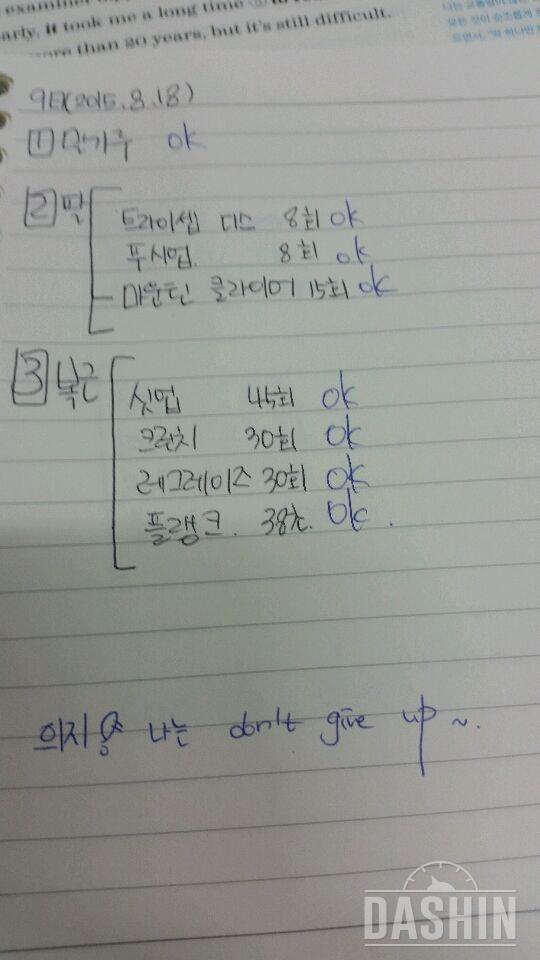 examiner
arly, it took me a long time
more than 20 years, but it's still difficult.
9日(2015.8.18)
1 ok
2 팔
트라이셉 디스 8회 ok
푸시업 8회 ok
마운틴 클라이머 15회 ok
3 복근
싯업 45회 ok
크런치 30회 ok
레그레이즈 30회 ok
플랭크. 38초. ok.
의지용 나는 don't give up ~.
DASHIN